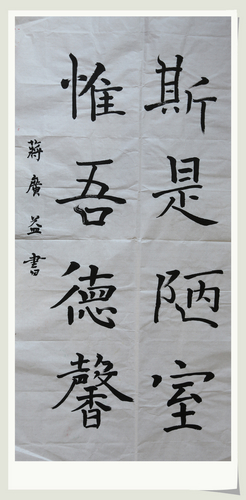 斯是陋室
惟吾德馨
蔣廣益書